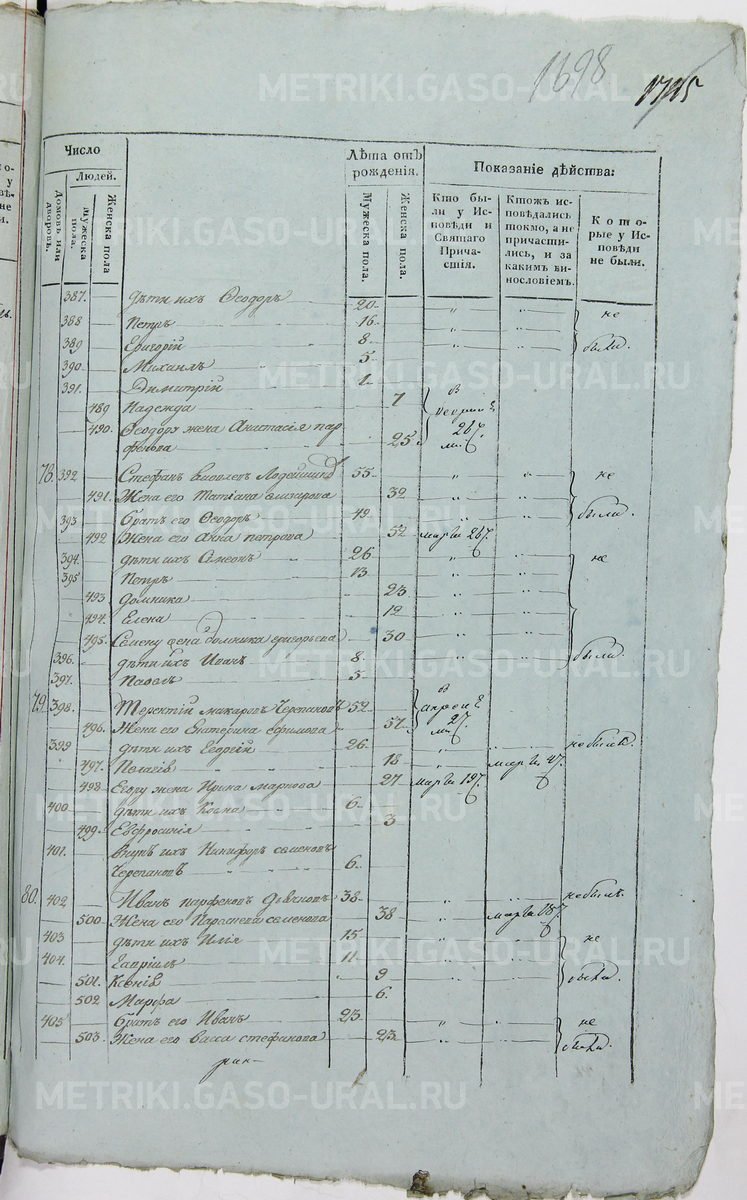 1698
1715
Число
Людей.
Домовъ или дворовъ.
Мужеска пола.
Женска пола
Лѣта отъ рожденія.
Мужеска пола.
Женска пола.
Показаніе дѣйства:
Кто бы-
ли у Ис-
повѣди и
Святаго
Прича-
стія.
Ктожъ ис-
повѣдались
токмо, а не
причасти-
лись, и за
какимъ ви-
нословіемъ.
Кото-
рые у Ис-
повѣди
не были.
387. дѣти ихъ Ѳеодоръ 20 не
388 Петръ 16
389 Григорій 8 были.
390. Михаилъ 5
391. Димитрій 1
489 Надежда 7
490. Ѳеодора жена Анастасія пар-
фенова 25 26
78. 392 Стефанъ 55 не
491. Жена его Татіана 39
393 братъ его Ѳеодоръ 49 были
492 Жена его Анна петрова 52 марта 26
394. дѣти ихъ Симеонъ 26 не
395 Петръ 13
493 Домника 23
494. Елена 19
495. Семену жена домника григорьева 30
396. дѣти ихъ Иванъ 8 были
397. Павелъ 5
79. 398. Терентій макаровъ Черепановъ 52 апреля
496. Жена его Екатерина ефимова 57 27
399 дѣти ихъ Георгій 26 не былъ.
497. Пелагія 18
498 Егору жена Ирина маркова 27 марта 19
400 дѣти ихъ Козма 6
499. Евфросинія 3
401. Внукъ ихъ Никифоръ семеновъ
Черепановъ 6
80. 402 Иванъ парфеновъ 38 не былъ.
500. Жена его Параскева семенова 38 марта
403 дѣти ихъ Илія 15 не
404. Гавріилъ 11
501. Ксенія 9 были
502 Марфа 6.
405 братъ его Иванъ 23 не
503. Жена его васса стефанова 23 были